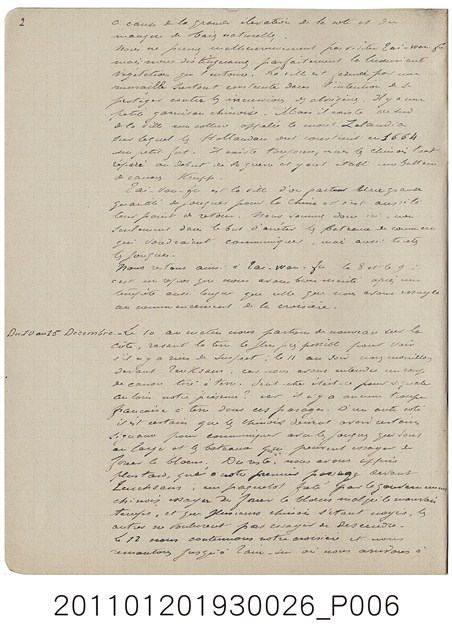 2
à cause de la grande élévation de la côte et du
manque de baie naturelle.
Nous ne pûmes malheureusement pas visiter Taï-wan-fu
mais nous distinguons parfaitement la luxuriante
végétation qui l'entoure. La ville est fermée par une
muraille surtout construite dans l'intention de la
protéger contre les incursions des aborigènes. Il y a une
petite garnison chinoise. Mais il existe au sud
de la ville une colline appelée le mont Zelandia
sur lequel les Hollandais ont construit en 1664
un petit fort. Il existe toujours, mais les chinois l'ont
réparé au début de la guerre et y ont établi une batterie
de canons Krupp.
Taï-wan-fu est la ville d'où partent une grande
quantité de jonques pour la Chine et c'est aussi là
leur point de retour. Nous sommes donc ici, non
seulement dans le but d'arrêter les bateaux de commerce
qui voudraient communiquer, mais aussi toutes
les jonques.
Nous restons ainsi à Taï-wan-fu le 8 et le 9 :
c'est un repos que nous avons bien mérité après une
tempête aussi longue que celle que nous avons essuyée
au commencement de la croisière.
Du 10 au 15 Décembre - Le 10 au matin nous partons de nouveau sur la
côte, rasant la terre le plus près possible pour voir
s'il n'y a rien de suspect ; le 11 au soir nous mouillons
devant, car nous avons entendu un coup
de canon tiré à terre. Peut-être était-ce pour signaler
au loin notre présence ? car il n'y a aucune troupe
française à terre dans ces parages. D'un autre côté
il est certain que les chinois doivent avoir certains
signaux pour communiquer avec les jonques qui sont
au large et les bateaux qui peuvent essayer de
forcer le blocus. Du reste, nous avons appris
plus tard, qu'à notre premier passage devant
, un paquebot frêté par le gouvernement
chinois essaya de forcer le blocus malgré le mauvais
temps, et que plusieurs chinois s'étant noyés, les
autres ne voulurent pas essayer de descendre.
Le 12 nous continuons notre croisière et nous
remontons jusqu'à Tam-sui où nous arrivons à
201101201930026_P006